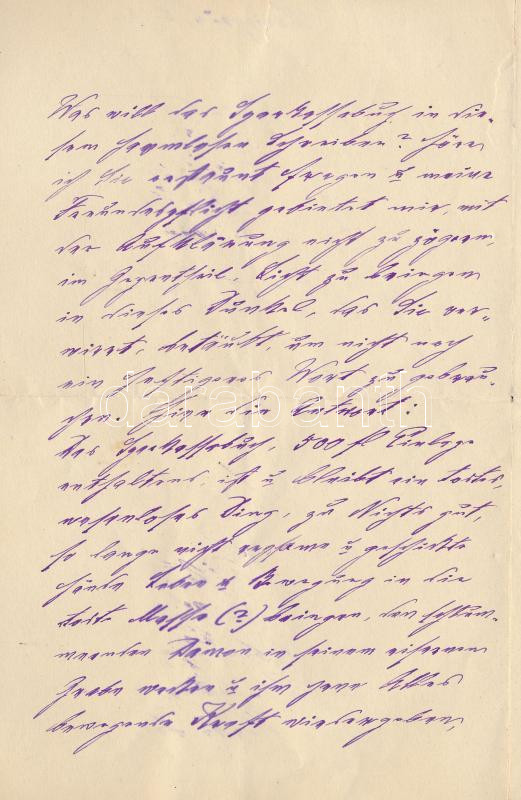 Was will das Sparkassebuch in die-
sem harmlosen Schreiben? höre
ich Sie erstaunt fragen u meine
Freundespflicht gebietet mir, mit
der Aufklärung nicht zu zögern,
im Gegentheil Licht zu bringen
in dieses Dunkel, das Sie ver-
wirrt, betäubt, um nicht noch
ein heftigeres Wort zu gebrau-
chen. Hier die Antwort:
Das Sparkassebuch, 500 fl Einlage
enthaltend, ist u bleibt ein todtes,
wesenloses Ding, zu Nichts gut,
so lange nicht u geschickte
Hände Leben u Bewegung in die
todte Masse (?) bringen, den schlum-
mernden Dämon in seinem eisernen
Grabe wecken u ihm jene Alles
bewegende Kraft wiedergeben,
darabanth